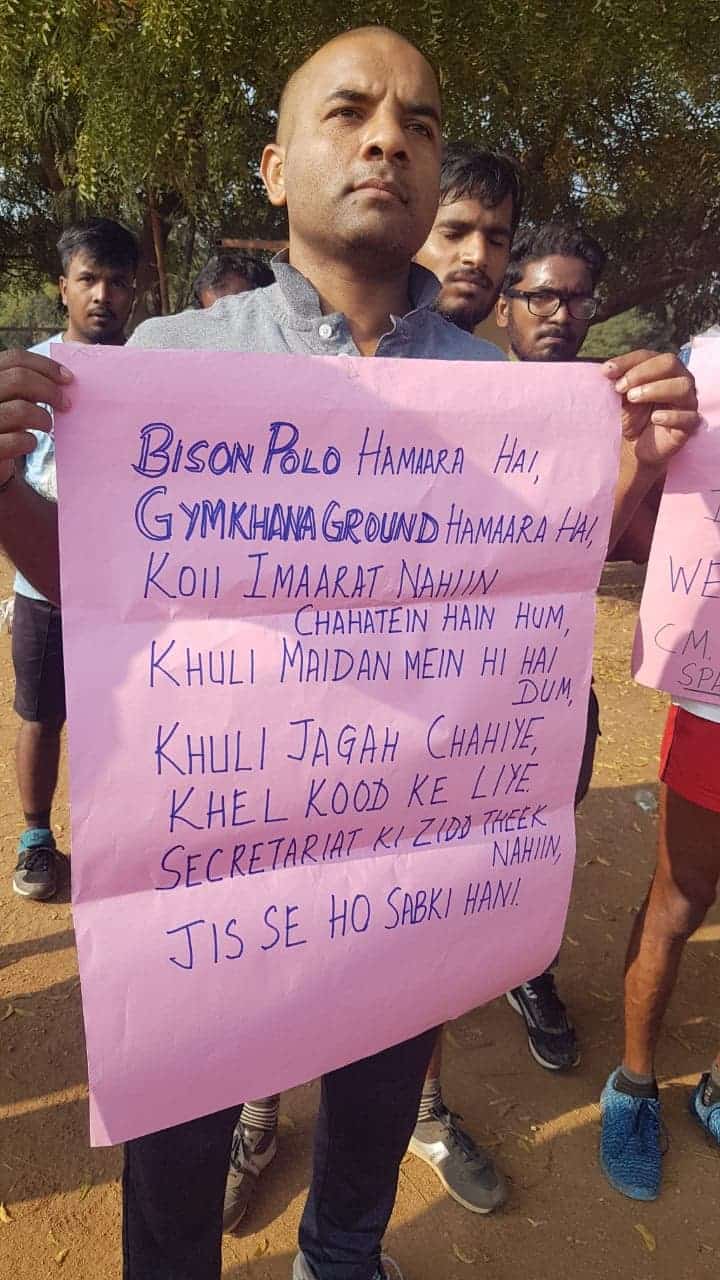 BISON POLO HAMAARA HAI,
GYMKHANA GROUND HAMAARA HAI,
KOII IMAARAT NAHIIN
CHAHATEIN HAIN HUM,
KHULI MAIDAN MEIN HI HAI
DUM,
KHULI JAGAH CHAHIYE,
KHEL KOOD KE LIYE.
SECRETARIAT KI ZIDD THEEK
NAHIIN,
JIS SE HO SABKI HANI.
WE
C.M.